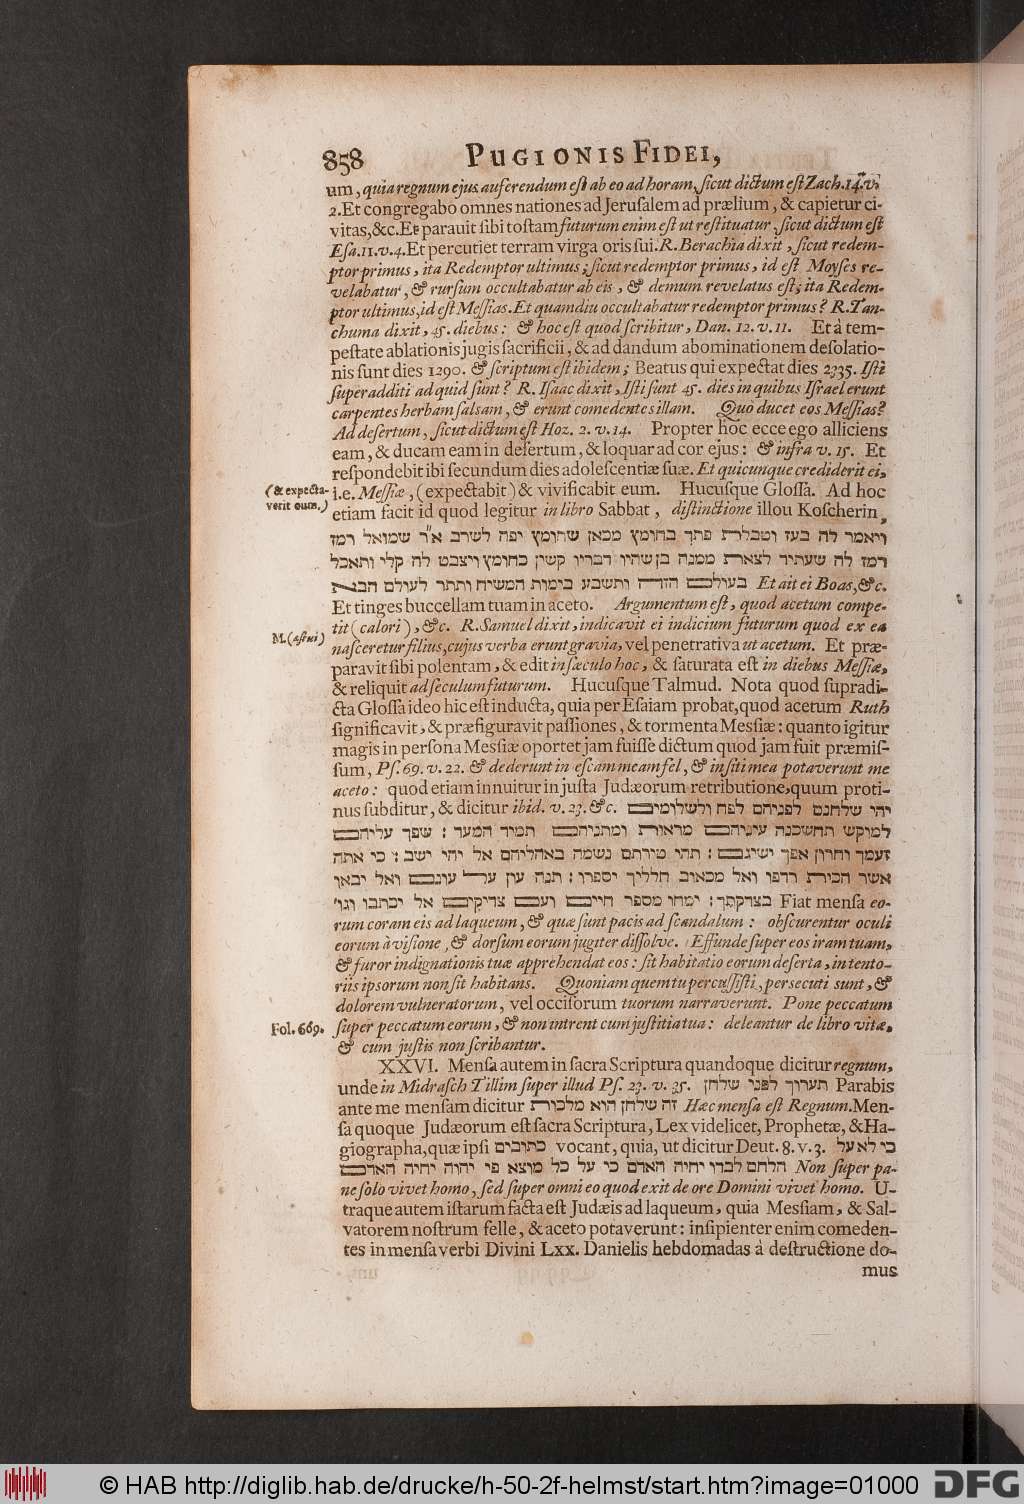 858 PUGIONIS FIDEI,
um, quia regnum ejus auferendum est ab eo ad horam, sicut dictum est Zach. 14. v.
2. Et congregabo omnes nationes ad Jerusalem ad prælium, & capietur ci-
vitas, &c. Et parauit sibi tostam futurum enim est ut restituatur, sicut dictum est
Esa. 11. v. 4. Et percutiet terram virga oris sui. R. Berachia dixit, sicut redem-
ptor primus, ita Redemptor ultimus; sicut redemptor primus, id est Moyses re-
velabatur, & rursum occultabatur ab eis, & demum revelatus est; ita Redem-
ptor ultimus, id est Messias. Et quamdiu occultabatur redemptor primus? R. Tan-
chuma dixit, 45. diebus: & hoc est quod scribitur, Dan. 12. v. 11. Et à tem-
pestate ablationis jugis sacrificii, & ad dandum abominationem desolatio-
nis sunt dies 1290. & scriptum est ibidem; Beatus qui expectat dies 2335. Isti
superadditi ad quid sunt? R. Isaac dixit, Isti sunt 45. dies in quibus Israel erunt
carpentes herbam salsam, & erunt comedentes illam. Quò ducet eos Messias?
Ad desertum, sicut dictum est Hoz. 2. v. 14. Propter hoc ecce ego alliciens
eam, & ducam eam in desertum, & loquar ad cor ejus: & infra v. 15. Et
respondebit ibi secundum dies adolescentiæ suæ. Et quicunque crediderit ei,
(& expecta-
verit eum.)
i.e. Messiæ, (expectabit) & vivificabit eum. Hucusque Glossa. Ad hoc
etiam facit id quod legitur in libro Sabbat, distinctione illou Koscherin,
ויאמר לה בעז וטבלת פתך בחומץ מכאן שחומץ יפה לשרב א״ר שמואל רמז
רמז לה שעתיד לצאת ממנה בן שהיו דבריו קשין כחומץ ויצבט לה קלי ותאכל
בעולם הזה ותשבע בימות המשיח ותתר לעולם הבא Et ait ei Boas, &c.
Et tinges buccellam tuam in aceto. Argumentum est, quod acetum compe-
M. (æstui)
tit (calori), &c. R. Samuel dixit, indicavit ei indicium futurum quod ex ea
nasceretur filius, cujus verba erunt gravia, vel penetrativa ut acetum. Et præ-
paravit sibi polentam, & edit in sæculo hoc, & saturata est in diebus Messiæ,
& reliquit ad seculum futurum. Hucusque Talmud. Nota quod supradi-
cta Glossa ideo hic est inducta, quia per Esaiam probat, quod acetum Ruth
significavit, & præfiguravit passiones, & tormenta Messiæ: quanto igitur
magis in persona Messiæ oportet jam fuisse dictum quod jam fuit præmis-
sum, Ps. 69. v. 22. & dederunt in escam meam fel, & in siti mea potaverunt me
aceto: quod etiam innuitur in justa Judæorum retributione, quum proti-
nus subditur, & dicitur ibid. v. 23. &c. יהי שלחנם לפניהם לפח ולשלומים
למוקש תחשכנה עיניהם מראות ומתניהם תמיד המעד : שפך עליהם
זעמך וחרון אפך ישיגם : תהי טירתם נשמה באהליהם אל יהי ישב : כי אתה
אשר הכית רדפו ואל מכאוב חלליך יספרו : תנה עון על עונם ואל יבאו
בצדקתך : ימחו מספר חיים ועם צדיקים אל יכתבו וגו' Fiat mensa eo-
rum coram eis ad laqueum, & quæ sunt pacis ad scandalum: obscurentur oculi
eorum à visione, & dorsum eorum jugiter dissolve. Effunde super eos iram tuam,
& furor indignationis tuæ apprehendat eos: sit habitatio eorum deserta, in tento-
riis ipsorum non sit habitans. Quoniam quem tu percussisti, persecuti sunt, &
dolorem vulneratorum, vel occisorum tuorum narraverunt. Pone peccatum
Fol. 669.
super peccatum eorum, & non intrent cum justitia tua: deleantur de libro vitæ,
& cum justis non scribantur.
XXVI. Mensa autem in sacra Scriptura quandoque dicitur regnum,
unde in Midrasch Tillim super illud Ps. 23. v. 35. תערוך לפני שלחן Parabis
ante me mensam dicitur זה שלחן הוא מלכות Hæc mensa est Regnum. Men-
sa quoque Judæorum est sacra Scriptura, Lex videlicet, Prophetæ, & Ha-
giographa, quæ ipsi כתובים vocant, quia, ut dicitur Deut. 8. v. 3. כי לא על
הלחם לבדו יחיה האדם כי על כל מוצא פי יהוה יחיה האדם Non super pa-
ne solo vivet homo, sed super omni eo quod exit de ore Domini vivet homo. U-
traque autem istarum facta est Judæis ad laqueum, quia Messiam, & Sal-
vatorem nostrum felle, & aceto potaverunt: insipienter enim comeden-
tes in mensa verbi Divini LXX. Danielis hebdomadas à destructione do-
mus
© HAB http://diglib.hab.de/drucke/h-50-2f-helmst/start.htm?image=01000 DFG